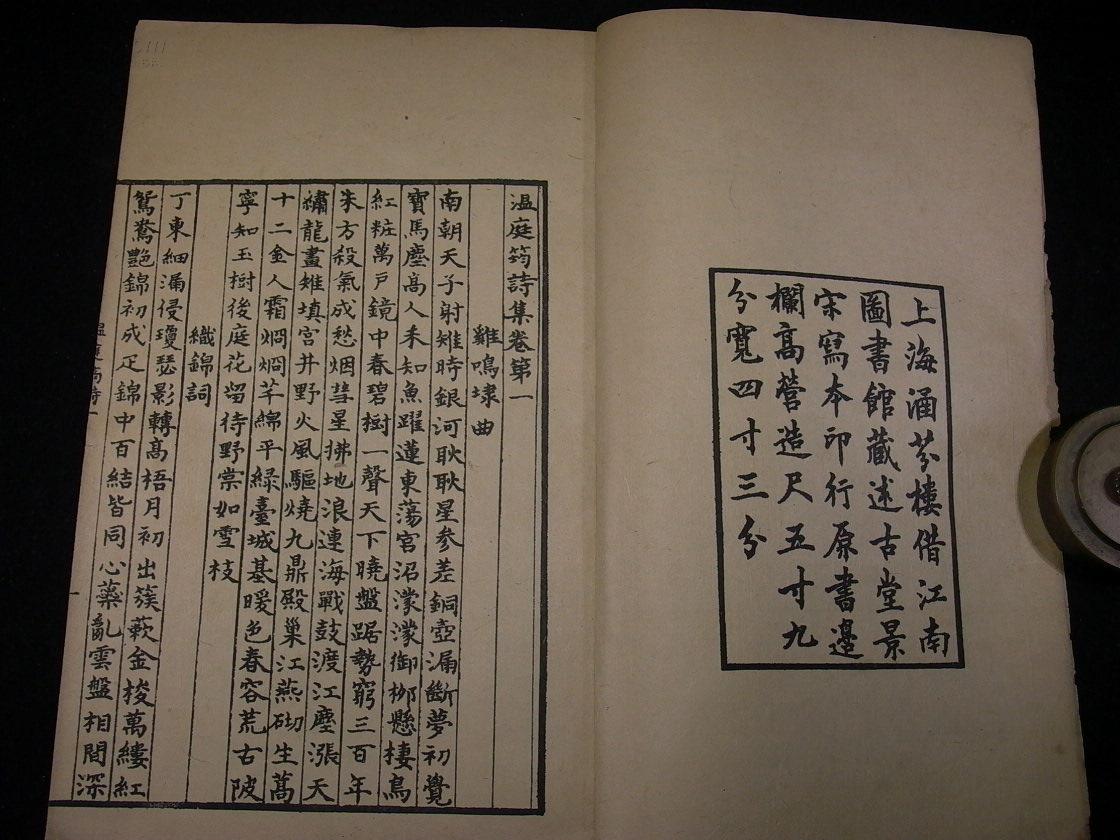 上海涵芬樓借江南
圖書館藏述古堂景
宋寫本印行原書邊
欄高營造尺五寸九
分寬四寸三分
温庭筠詩集卷第一
雞鳴埭曲
南朝天子射雉時銀河耿耿星參差銅壺漏斷夢初覺
寶馬塵高人未知魚躍蓮東蕩宮沼濛濛御栁懸棲鳥
紅粧萬戶鏡中春碧樹一聲天下曉盤踞勢窮三百年
朱方殺氣成愁烟彗星拂地浪連海戰鼓渡江塵漲天
繡龍畫雉填宮井野火風驅燒九鼎殿巢江燕砌生蒿
十二金人霜烱烱芊綿平緑臺城基暖色春容荒古陂
寧知玉樹後庭花留待野棠如雪枝
織錦詞
丁東細漏侵瓊瑟影轉高梧月初出簇蔌金梭萬縷紅
鴛鴦艷錦初成疋錦中百結皆同心蘂亂雲盤相間深